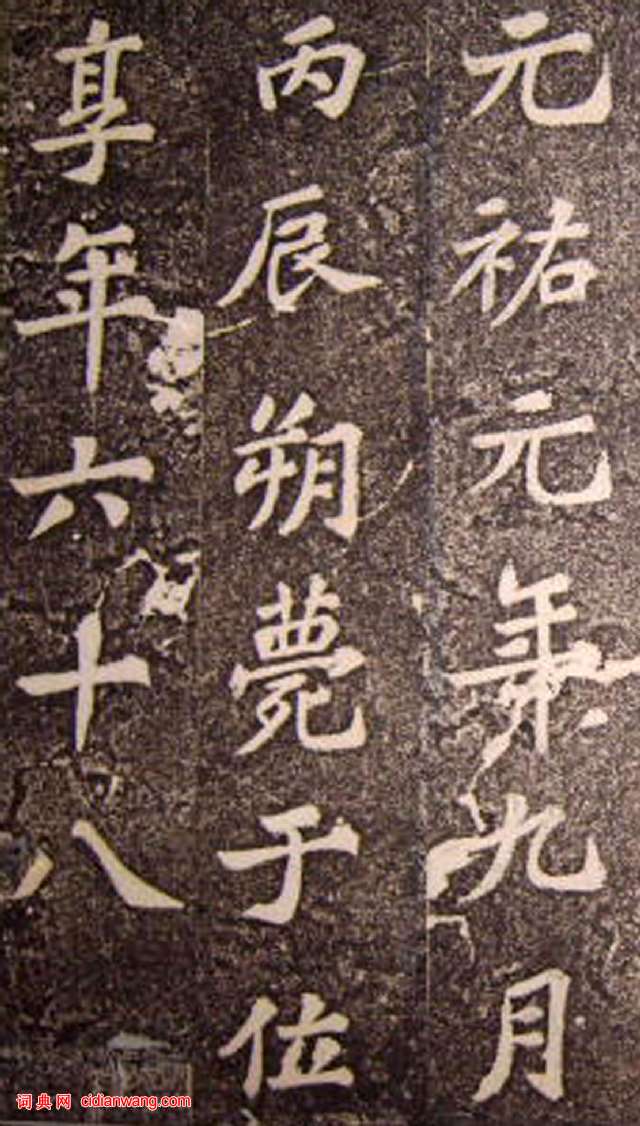 元祐元年九月
丙辰朔薨于位
享年六十八
词典网 cidianwang.com